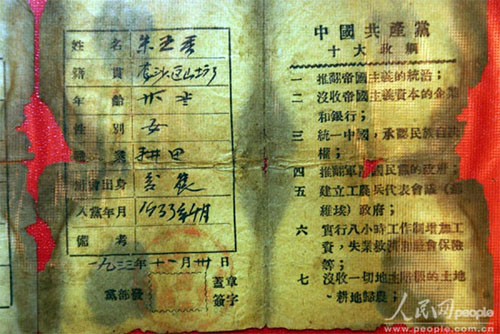 姓名 朱
籍貫
年齡
性別 女
職業 耕田
出身
入黨年月 1933年 月
備考
一九三三年十一月卅日
黨部發
蓋章
簽字
中國共產黨
十大政綱
一 推翻帝國主義的統治；
二 沒收帝國主義資本的企業
和銀行；
三 統一中國，承認民族自決
權；
四 推翻軍 國民黨的政府；
五 建立工農兵代表會議（
維埃）政府；
六 實行八小時工作制增加工
資，失業救濟和社會保險
等；
七 沒收一切地主階級的土地
耕地歸農；
人民网 people
www.people.com.cn